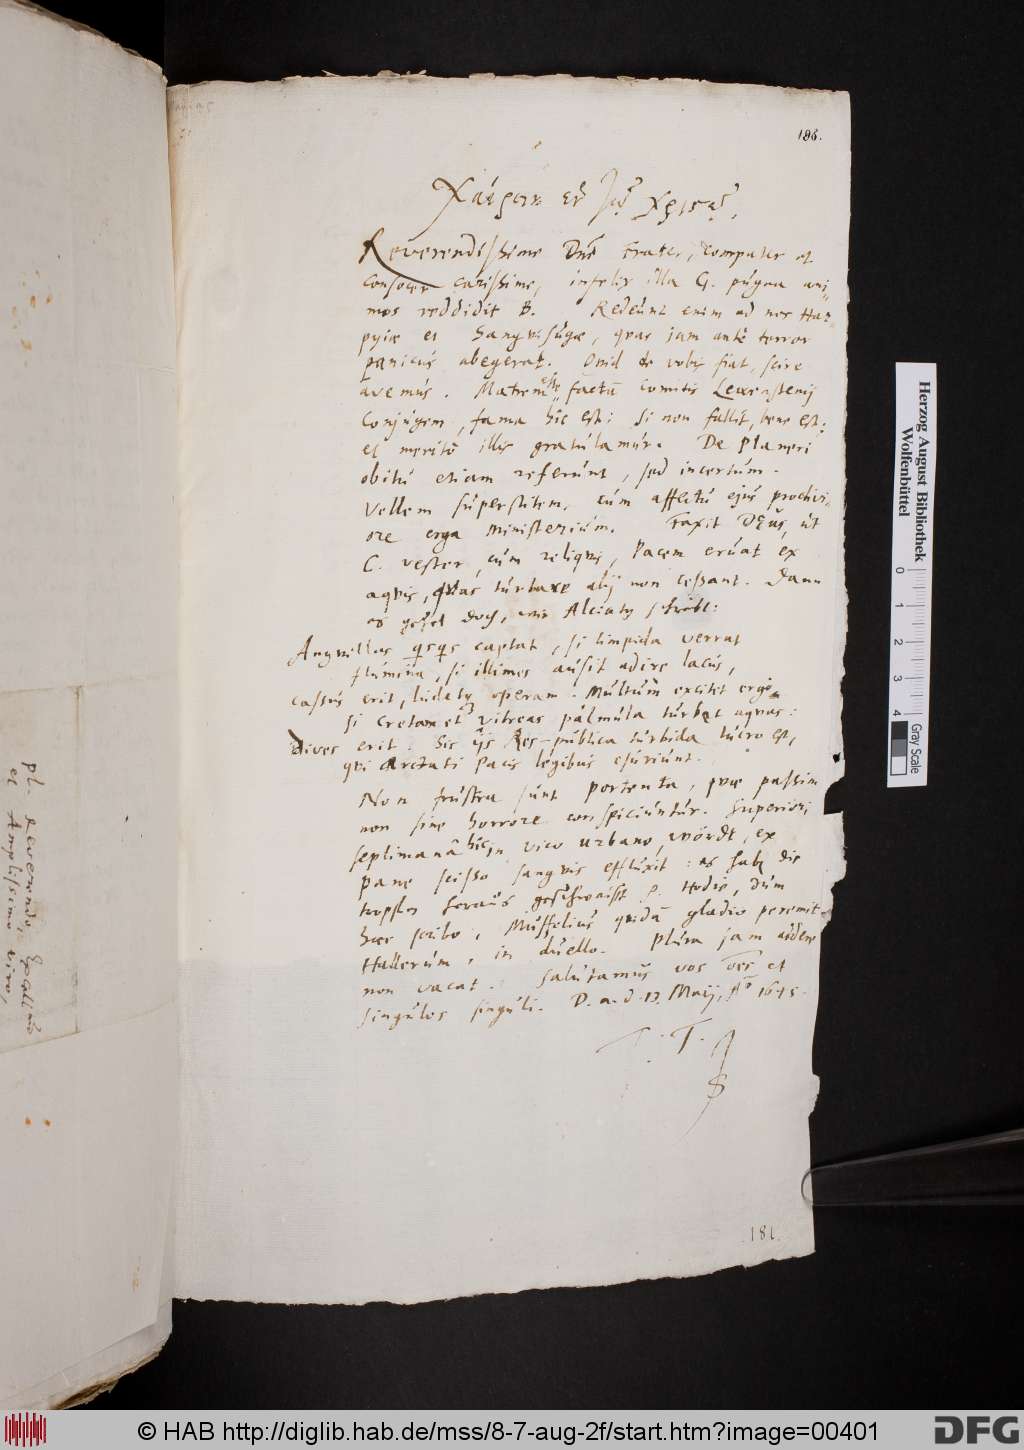 186.
Χαίρειν ἐν
Reverendissime Dne Frater, Compater et
Consocer carissime, infelix illa G. pugna ani-
mos reddidit B. Redeunt enim ad nos Har-
pyiæ et Sangvisugæ, quas jam ante terror
panicus abegerat. Quid de vobis fiat, scire
avemus. Matrem esse factã comitis Leweẽstenij
Conjugem, fama hic est: si non fallit, bene est:
et meritò illis gratulamur. De Planeri
obitu etiam referunt, sed incertum.
Vellem superstitem, cum affectu ejus proclivi-
ore erga Ministerium. Faxit DEus, ut
C. vester, cum reliquis, Pacem eruat ex
aqvis, qvas turbare alij non cessant. Dann
es gehet doch, wie Alciatg schreibt:
Angvillas qsqs captat, si limpida verrat
flumina, si illimes ausit adire lacus,
cassus erit, ludetq operam. Multum excitet ergò
si cretam et vitreas palmula turbet aquas:
Dives erit: sic ijs Res-publica turbida lucro est,
qui arctati Pacis legibus esuriunt.
Non frustra sunt portenta, quæ passim
non sine horrore conspiciuntur. Superiori
septimanâ hic in vico urbano, Wördt, ex
pane scisso sangvis effluxit: es hab die
tropffen heraus
hæc scribo, Muffelius quidã gladio peremit
Hallerum, in duello. Plura jam addere
non vacat. Salutamus vos oẽs et
singulos singuli. D. a. d. 13. Maij, Aõ 1645.
T.
181.
pl. Reverendo, Excellmo
et Amplissimo viro,
Herzog August Bibliothek
Wolfenbüttel
0 1 2 3 4
Gray Scale
© HAB http://diglib.hab.de/mss/8-7-aug-2f/start.htm?image=00401
DFG